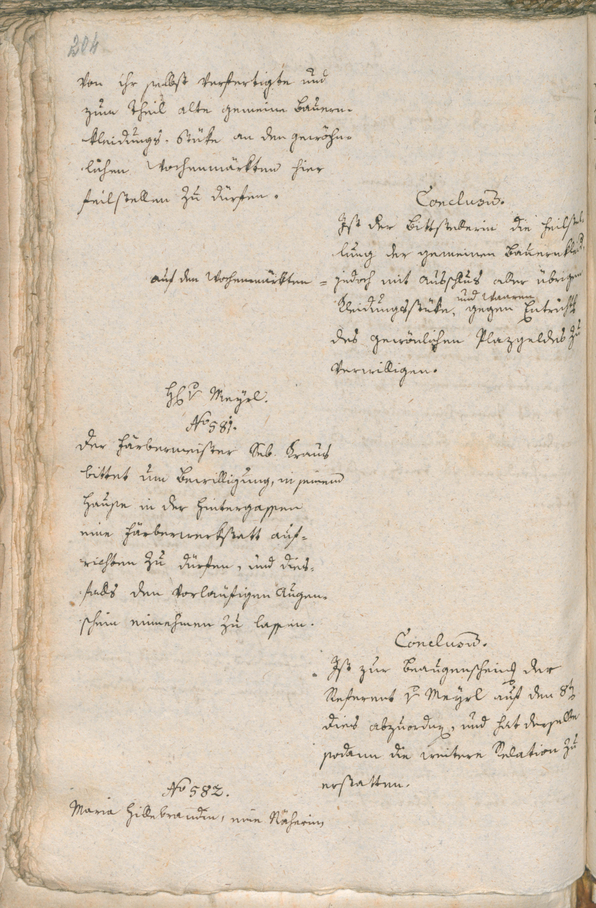 284.
von ihr selbst verfertigte und
zum Theil alte gemeine Bauern-
kleidungs-Stüke an den gewöhn-
lichen Wochenmärkten hier
feilstellen zu dürfen.
Conclusum.
Ist der Bittstellerin die Feilstel-
lung der gemeinen Bauernkleid.
auf den Wochenmärkten = jedoch mit Ausschlus aller übrigen
und Waaren
Kleidungsstüke, gegen Entricht
des gewönlichen Plazgeldes zu
verwilligen.
H. v. Meyrl.
No 581.
Der Färbermeister Seb. Kraus
bittet um Bewilligung, in seinem
Hause in der Hintergassen
eine Färberwerkstatt auf-
richten zu dürfen, und dies-
falls den vorläufigen Augen-
schein einnehmen zu lassen.
Conclusum.
Ist zur Beaugenscheinig der
Referent v. Meyrl auf den 8t
dies abzuordnen, und hat derselbe
sodann die weitere Relation zu
erstatten.
No 582.
Maria Hillebrandin, eine Näherin